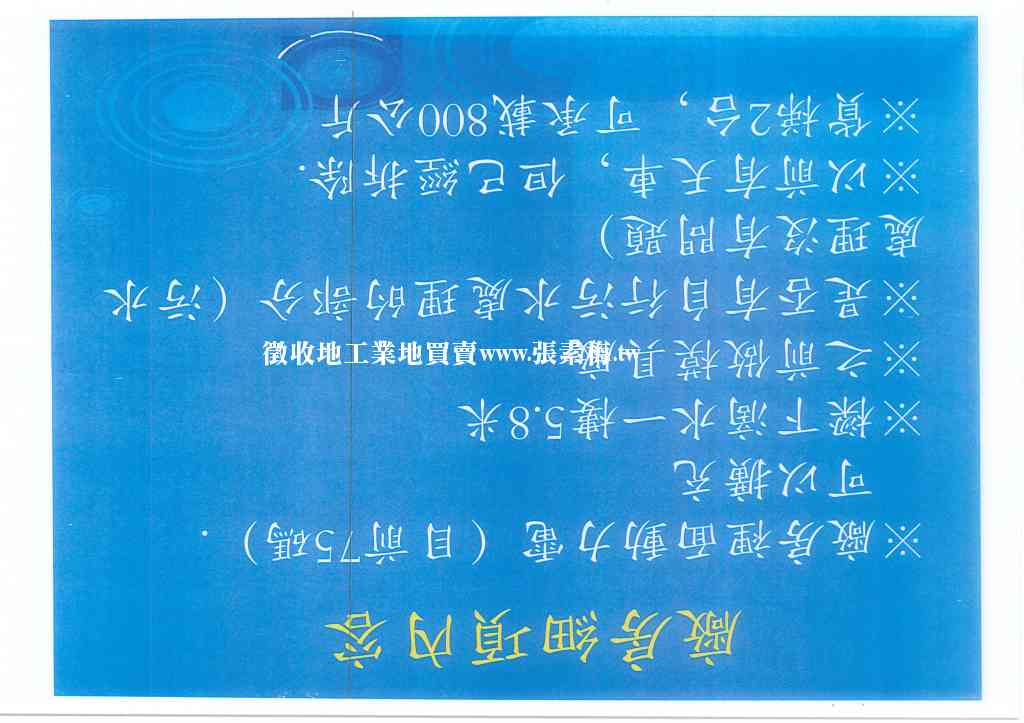 廠房細項內容
※廠房裡面動力電（目前75碼）．
可以擴充
※樑下滴水一樓5.8米
※之前做模具廠
※是否有自行污水處理的部分（污水
處理沒有問題）
※以前有天車，但已經拆除．
※貨梯2台，可承載800公斤
徵收地工業地買賣www.張素楀.tw